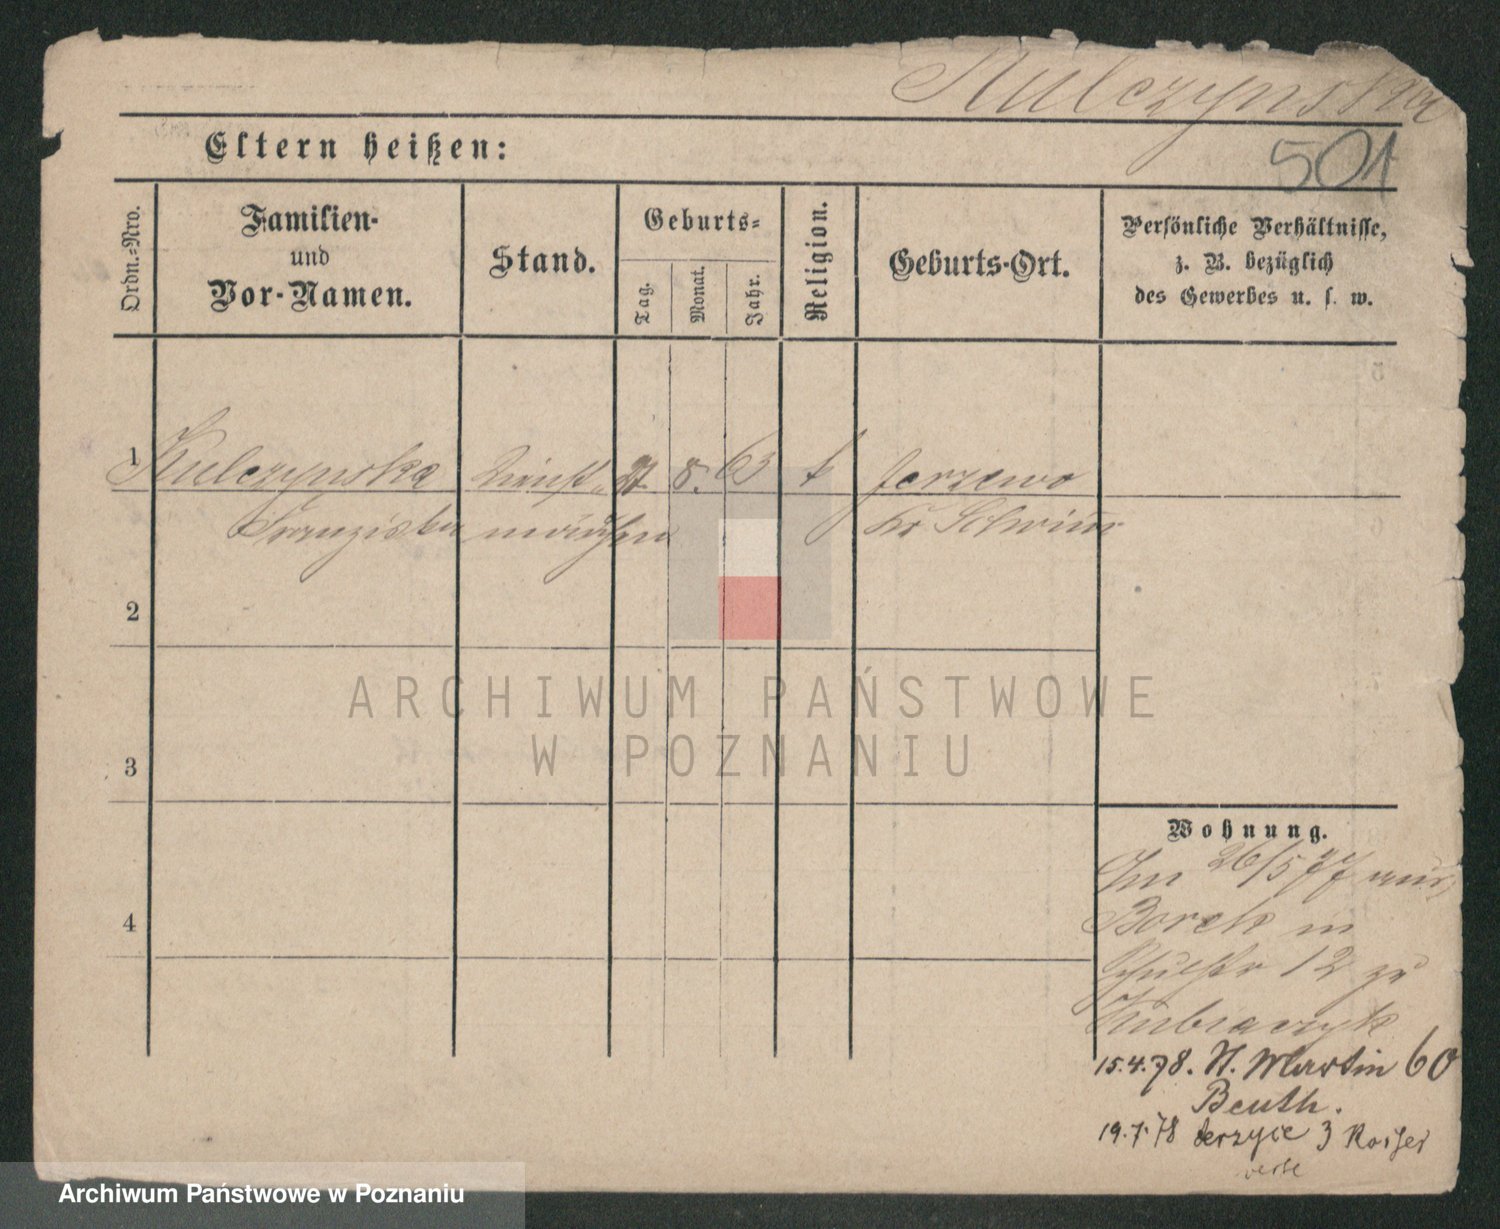 Kulczynska
501
Eltern heißen:
Ordn.-Nro.
Familien-
und
Vor-Namen.
Stand.
Geburts-
Tag.
Monat.
Jahr.
Religion.
Geburts-Ort.
Persönliche Verhältnisse,
z. B. bezüglich
des Gewerbes u. s. w.
1 Kulczynska Dienst- 8. 63 k Jerzewo
Franziska mädchen Kr Schrimm
2
3
4
Wohnung.
Am 26/5 77 aus
Borek in
Schulstr 12 zu
Kubiaczyk
15.4.78. St. Martin 60
Beuth.
19.7.78 Jerzyce 3 Kaiser
ARCHIWUM PAŃSTWOWE
W POZNANIU
Archiwum Państwowe w Poznaniu